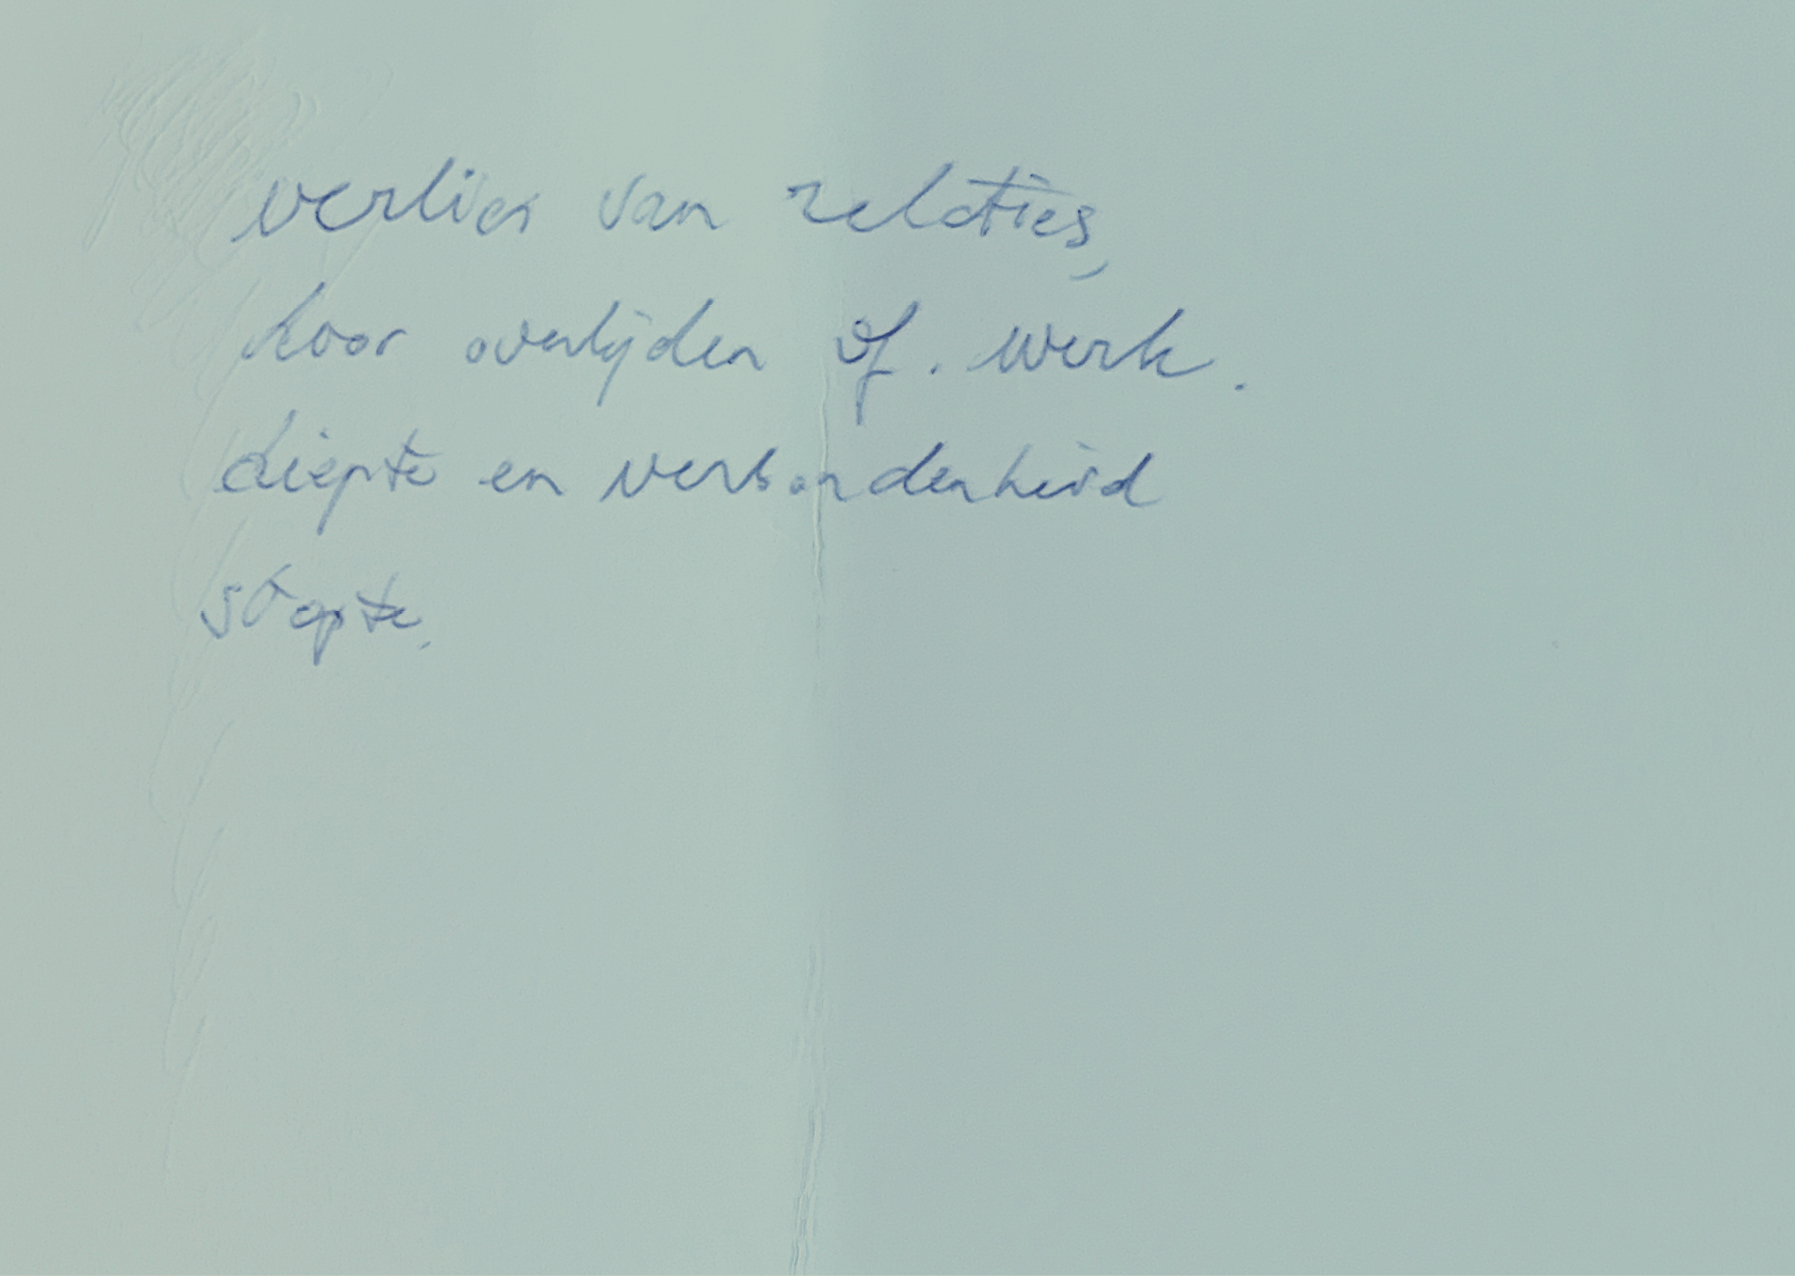 verlies van relaties,
door overlijden of. werk.
diepte en verbondenheid
stopte.